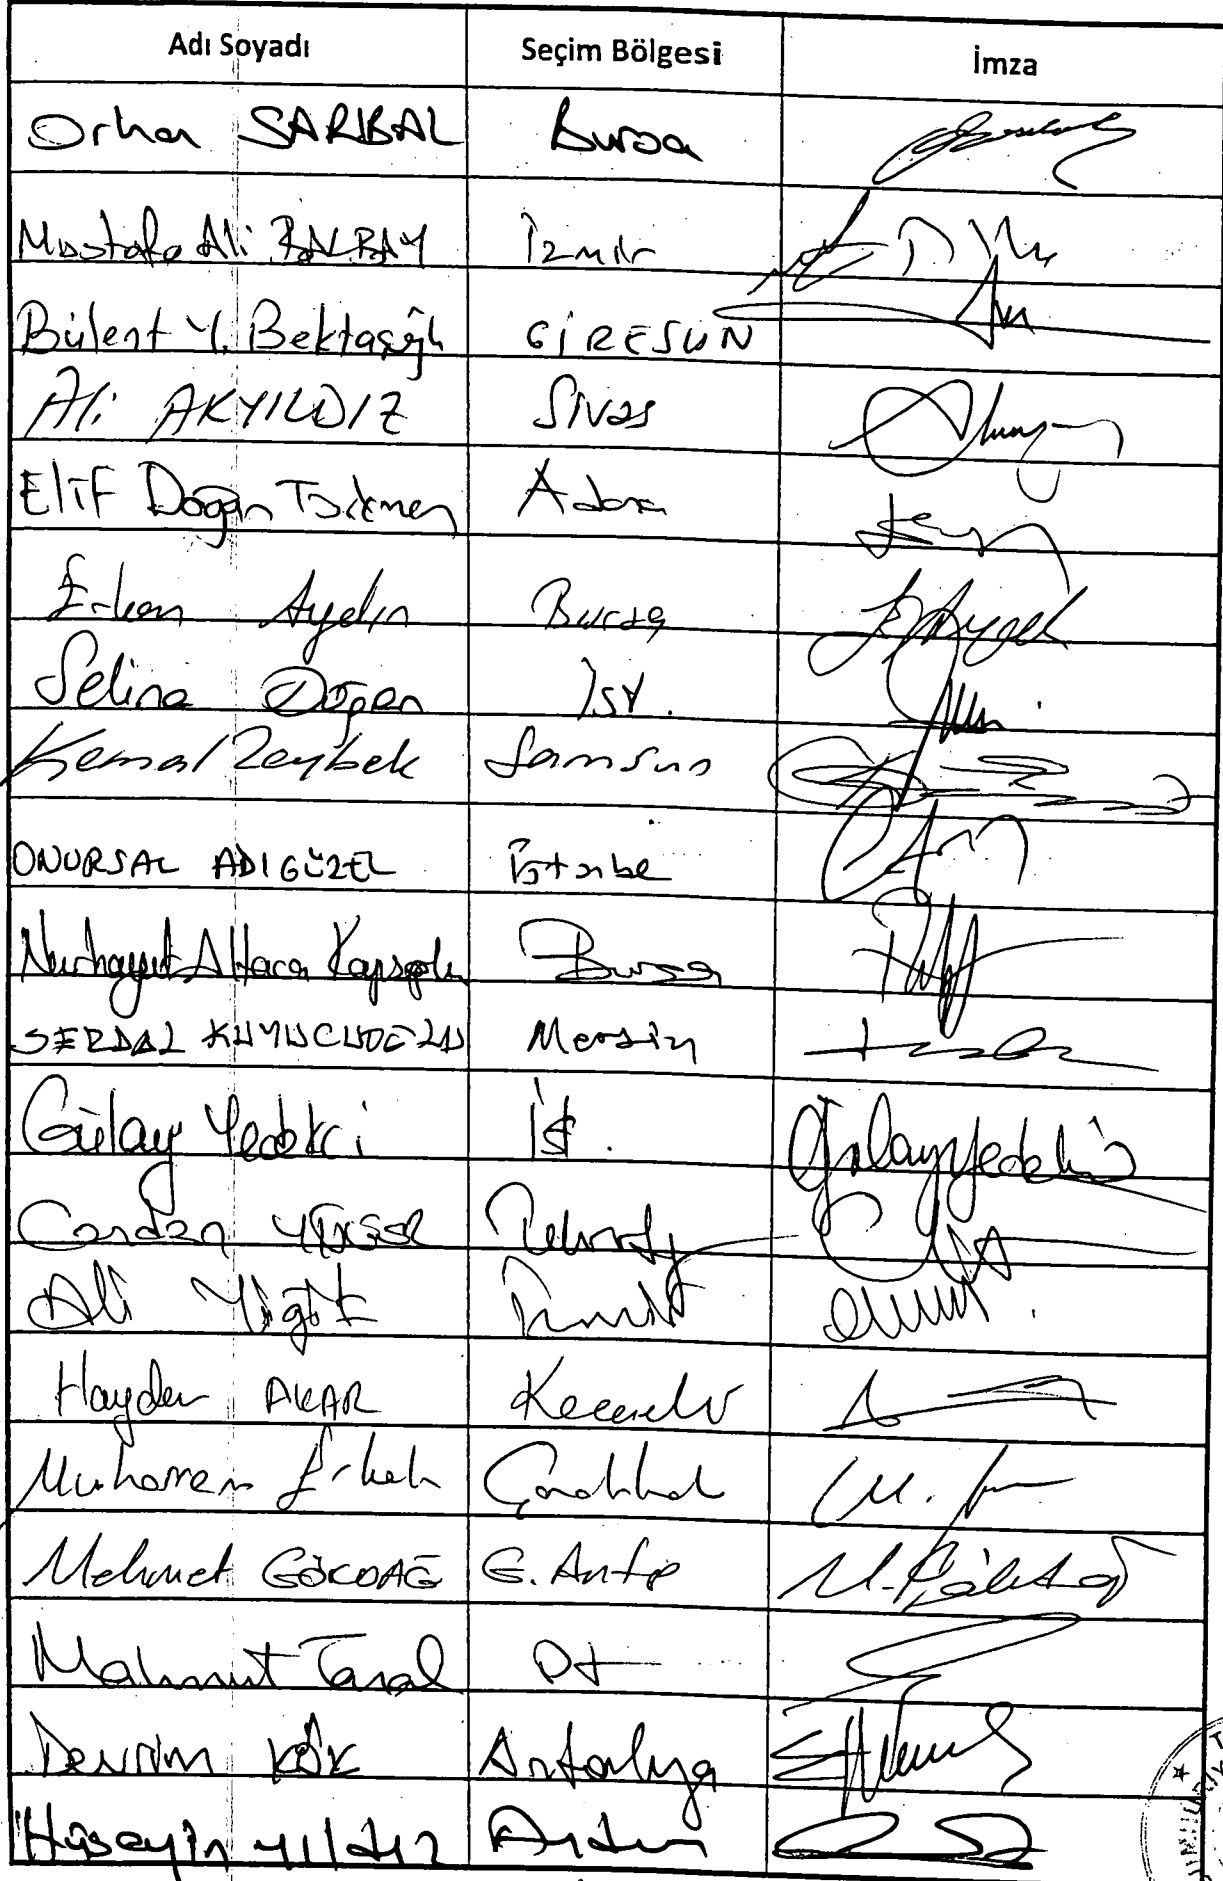 Adı Soyadı Seçim Bölgesi İmza
Orhan SARIBAL Bursa
Mustafa Ali BALBAY İzmir
Bülent Y. Bektaşoğlu GİRESUN
Ali AKYILDIZ Sivas
Elif Doğan Türkmen Adana
Erkan Aydın Bursa
Selina Doğan İst.
Kemal Zeybek Samsun
ONURSAL ADIGÜZEL İstanbul
Nurhayat Altaca Kayışoğlu Bursa
SERDAL KUYUCUOĞLU Mersin
Gülay Yedekci İst. Gülay Yedekci
Candan YÜCEER Tekirdağ
Ali Yiğit İzmir
Haydar AKAR Kocaeli
Muharrem Erkek Çanakkale
Mehmet GÖKDAĞ G. Antep M. Gökdağ
Mahmut Tanal
Devrim KÖK Antalya
Hüseyin Yıldız Aydın